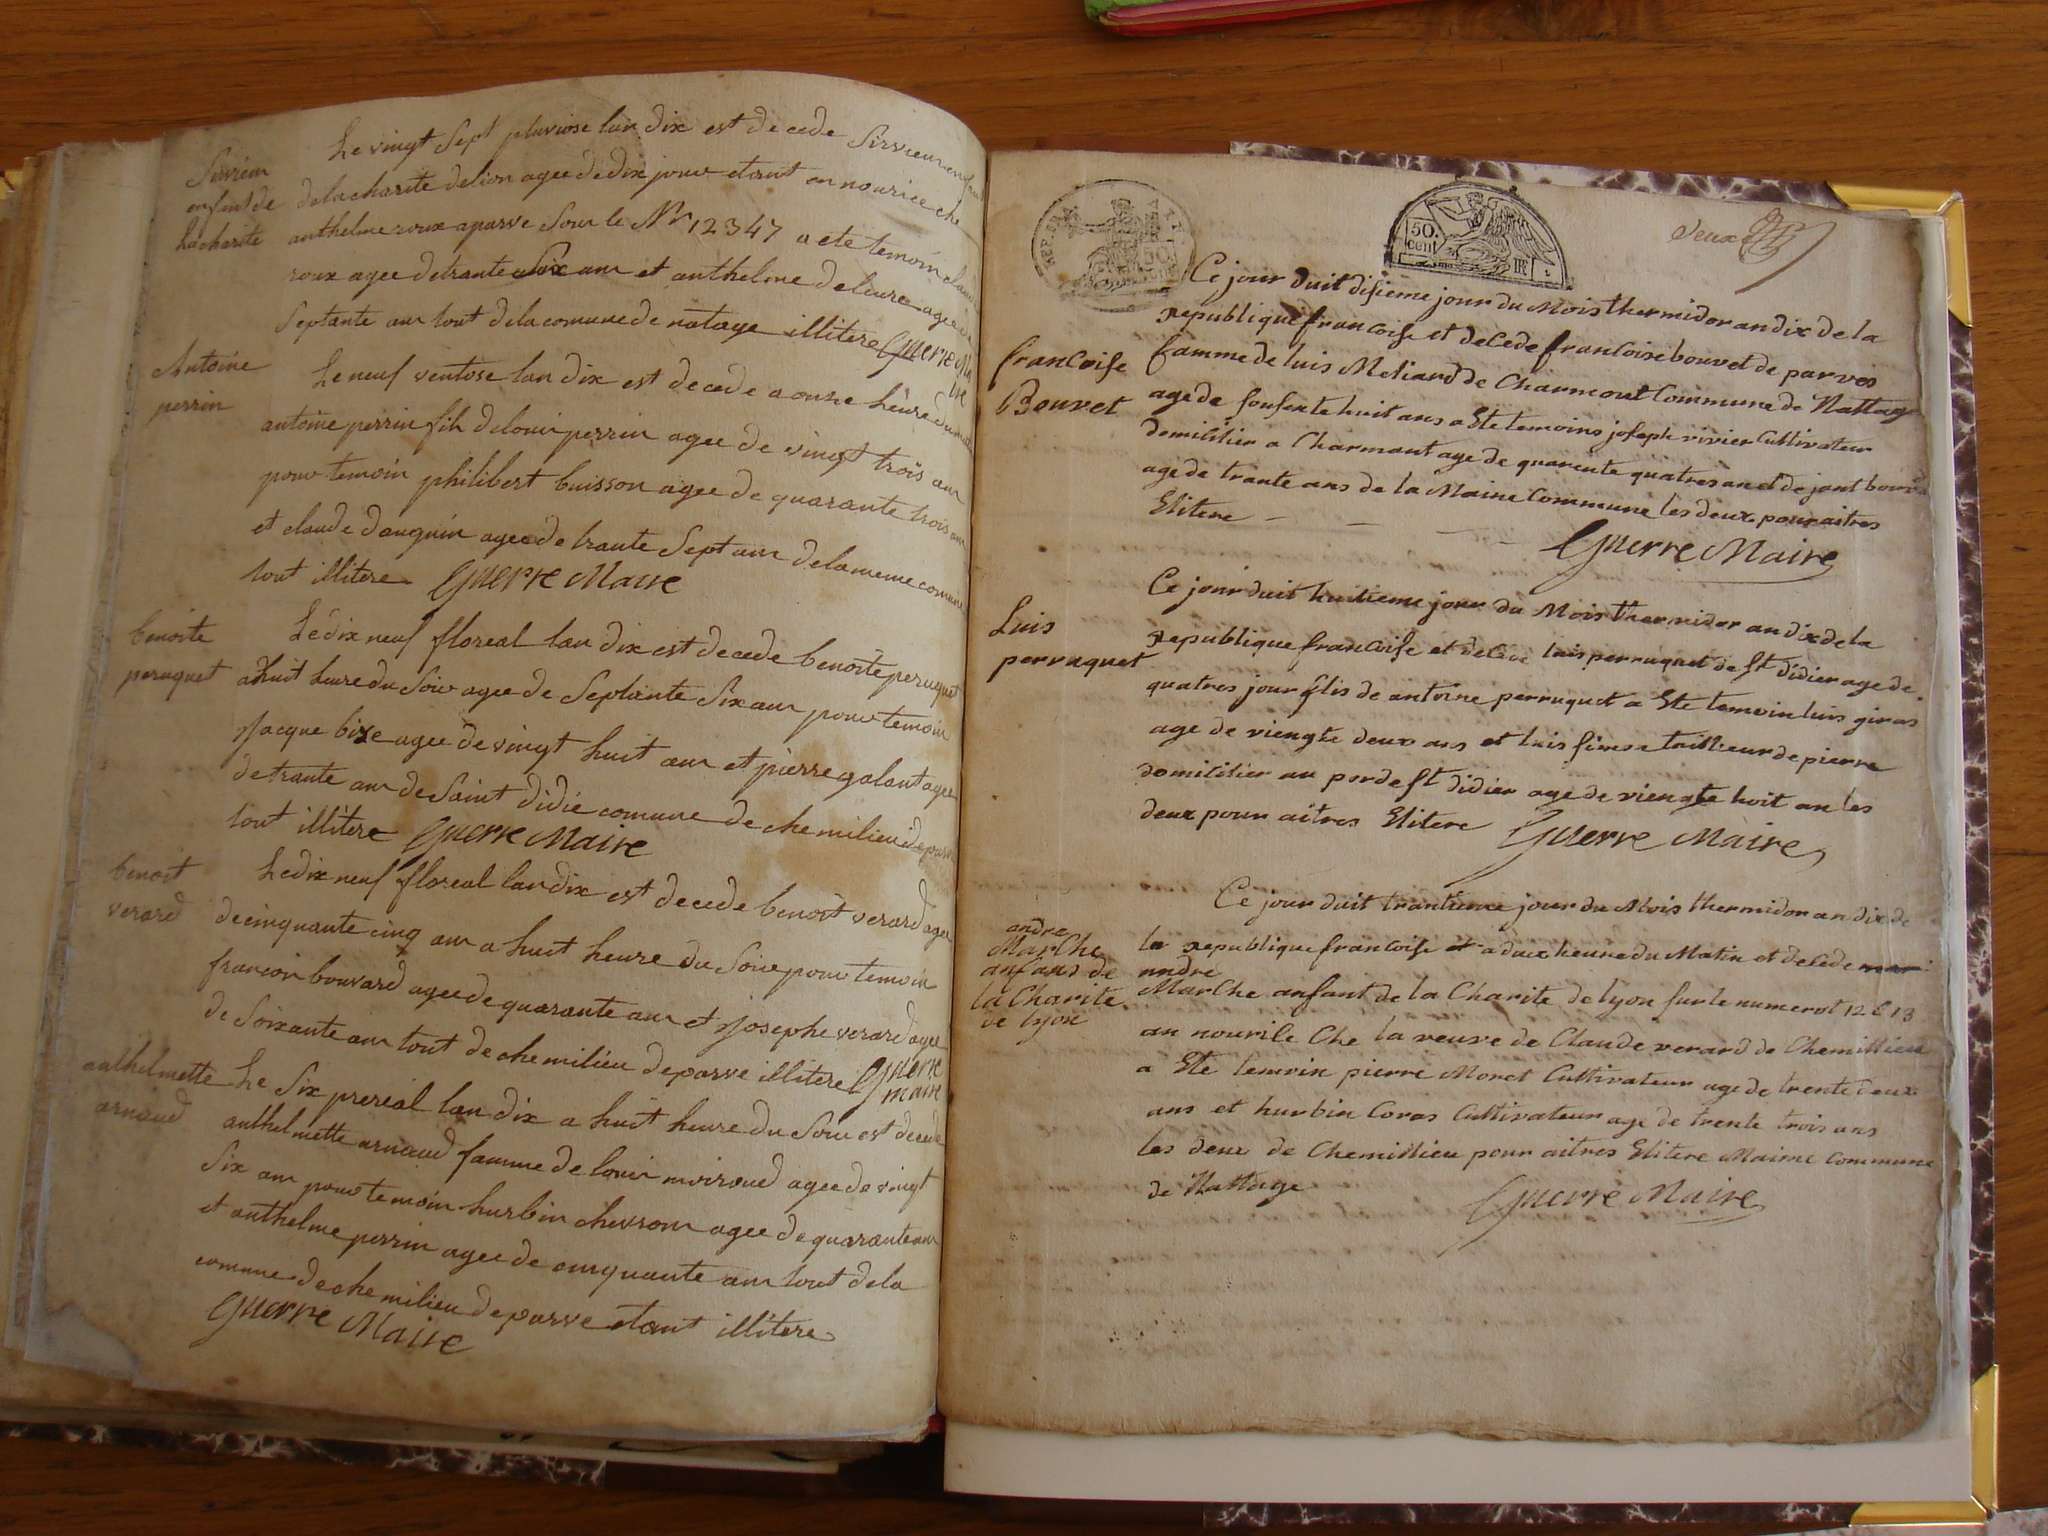 Le vingt Sept pluviose lan dix est decede Sirvien enfant
Sirvien
enfent de
la charite
de la charite de lion agee de dix jour etant en nourice che
anthelme roux a parve Sour le Nr 12347 a ete temoin claude
roux agee de trante Six am et anthelme deleure agee de
Septante am tout de la comune de natage illitere Guerre Ma
ire
Antoine
perrin
Le neuf ventose lan dix est decede a onze heure du matin
antoine perrin fih de louir perrin agee de vingt trois am
pour temoin philibert buisson agee de quarante trois am
et claude danguin agee de trante Sept am de la meme comune
tout illitere Guerre Maire
benoite
peruquet
Le dix neuf floreal lan dix est decede benoite peruquet
a huit heure du Soir agee de Septante Six am pour temoin
Jacque bixe agee de vingt huit am et pierre galant agee
de trante am de Saint didie comune de chemilieu de parve
tout illitere Guerre Maire
benoit
verard
Le dix neuf floreal lan dix est decede benoit verard agee
de cinquante cinq am a huit heure du Soire pour temoin
francoir bouvard agee de quarante am et Josephe verard agee
de Soixante am tout de chemilieu de parve illitere Guerre
maire
anthelmette
arnaud
Le Six prereal lan dix a huit heure du Soir est decede
anthelmette arnaud famme de louir moiroud agee de vingt
Six am pour temoin hurbin chevrom agee de quarante am
et anthelme perrin agee de cinquante am tout de la
comune de chemilieu de parve etant illitere
Guerre Maire
REP. FRA.
50.
cent
deux
Ce jour duit disieme jour du Mois thermidor an dix de la
republique francoise et delede francoise bouvet de parves
francoise
Bouvet
famme de luis Meliard de Charmont Commune de Nattage
age de sousente huit ans a Ete temoins joseph vivier Cultivateur
domilitier a Charmant age de quarente quatres an et de jant
age de trante ans de la Maine Commune les deux pour aitres
Elitere
Guerre Maire
Luis
perruquet
Ce jour duit huitieme jour du Mois thermidor an dix de la
republique francoise et delede luis perruquet de st didier age de
quatres jour filis de antoine perruquet a Ete temoin luis giras
age de viengte deux ans et luis simon tailleur de pierre
domilitier au por de st didier age de viengte hoit an les
deux pour aitres Elitere Guerre Maire
andre
Marche
anfans de
la Charite
de lyon
Ce jour duit trantieme jour du Mois thermidor an dix de
la republique francoise et a deux heure du Matin et delede mar
andre
Marche anfant de la Charite de lyon sur le numerot 12 C 13
an nourile Che la veuve de Claude verard de Chemillieu
a Ete temoin pierre Moret Cultivateur age de trente deux
ans et hurbin Coras Cultivateur age de trente trois ans
les deux de Chemillieu pour aitres Elitere Maime Commune
de Nattage
Guerre Maire